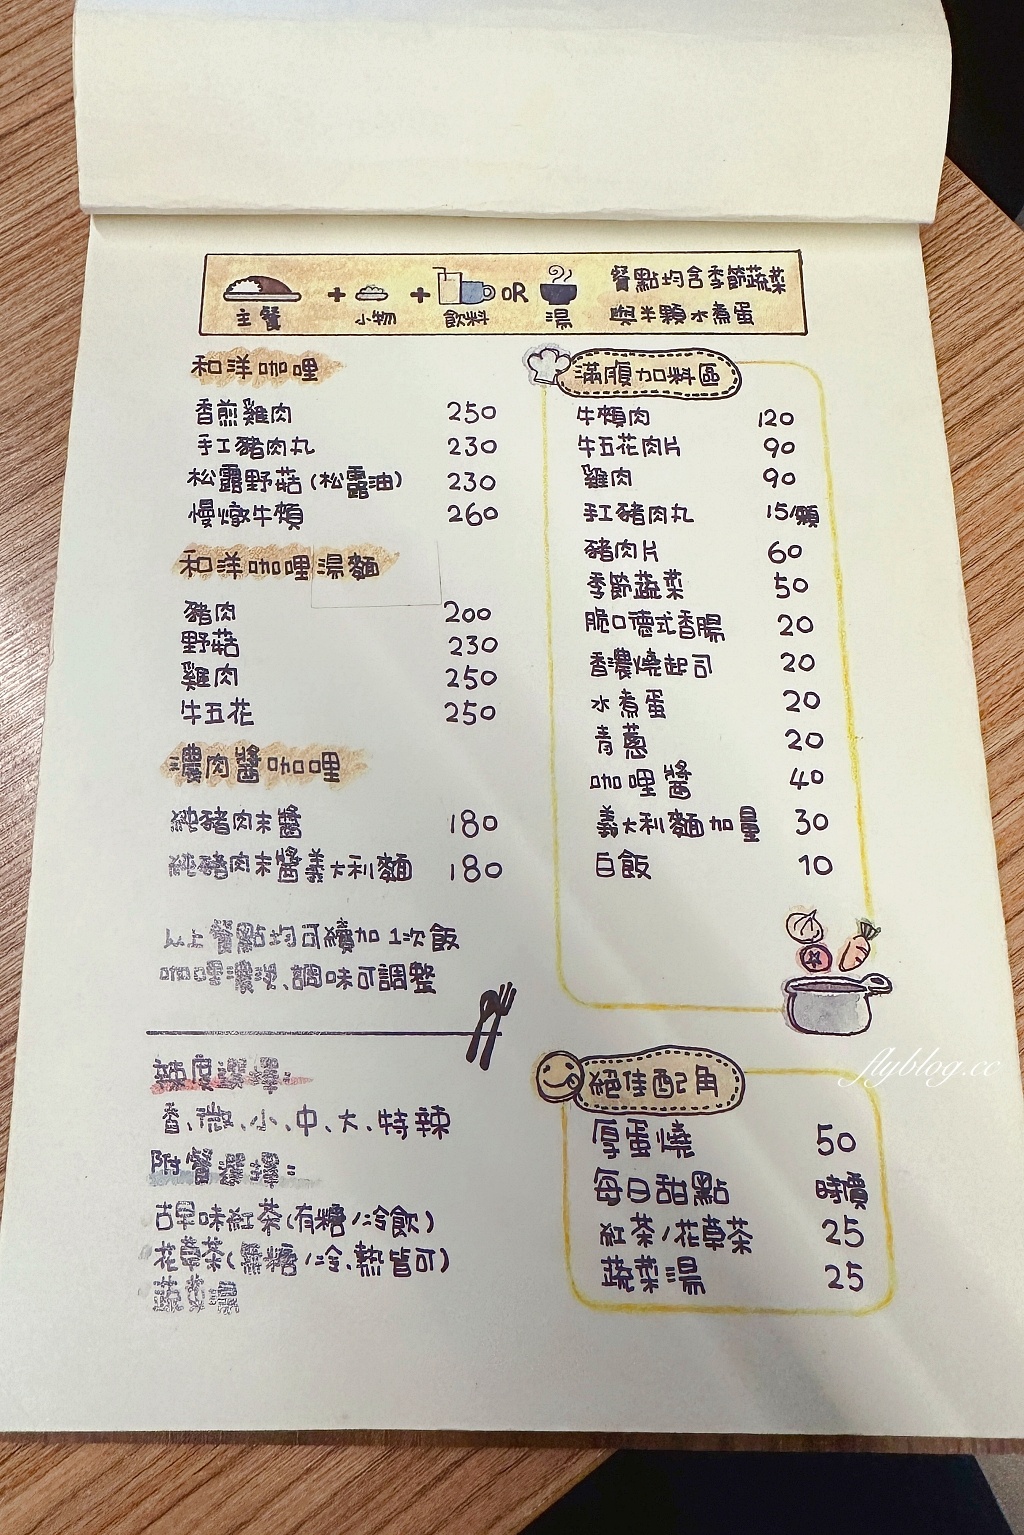 主餐 + 小物 + 飲料 OR 湯
餐點均含季節蔬菜
與半顆水煮蛋
和洋咖哩
香煎雞肉 250
手工豬肉丸 230
松露野菇(松露油) 230
慢燉牛頰 260
和洋咖哩湯麵
豬肉 200
野菇 230
雞肉 250
牛五花 250
濃肉醬咖哩
純豬肉末醬 180
純豬肉末醬義大利麵 180
以上餐點均可續加1次飯
咖哩濃淡、調味可調整
辣度選擇:
香、微、小、中、大、特辣
附餐選擇:
古早味紅茶(有糖/冷飲)
花草茶(無糖/冷、熱皆可)
蔬菜湯
滿腹加料區
牛頰肉 120
牛五花肉片 90
雞肉 90
手工豬肉丸 15/顆
豬肉片 60
季節蔬菜 50
脆口德式香腸 20
香濃燒起司 20
水煮蛋 20
青蔥 20
咖哩醬 40
義大利麵加量 30
白飯 10
絕佳配角
厚蛋燒 50
每日甜點 時價
紅茶/花草茶 25
蔬菜湯 25
flyblog.cc